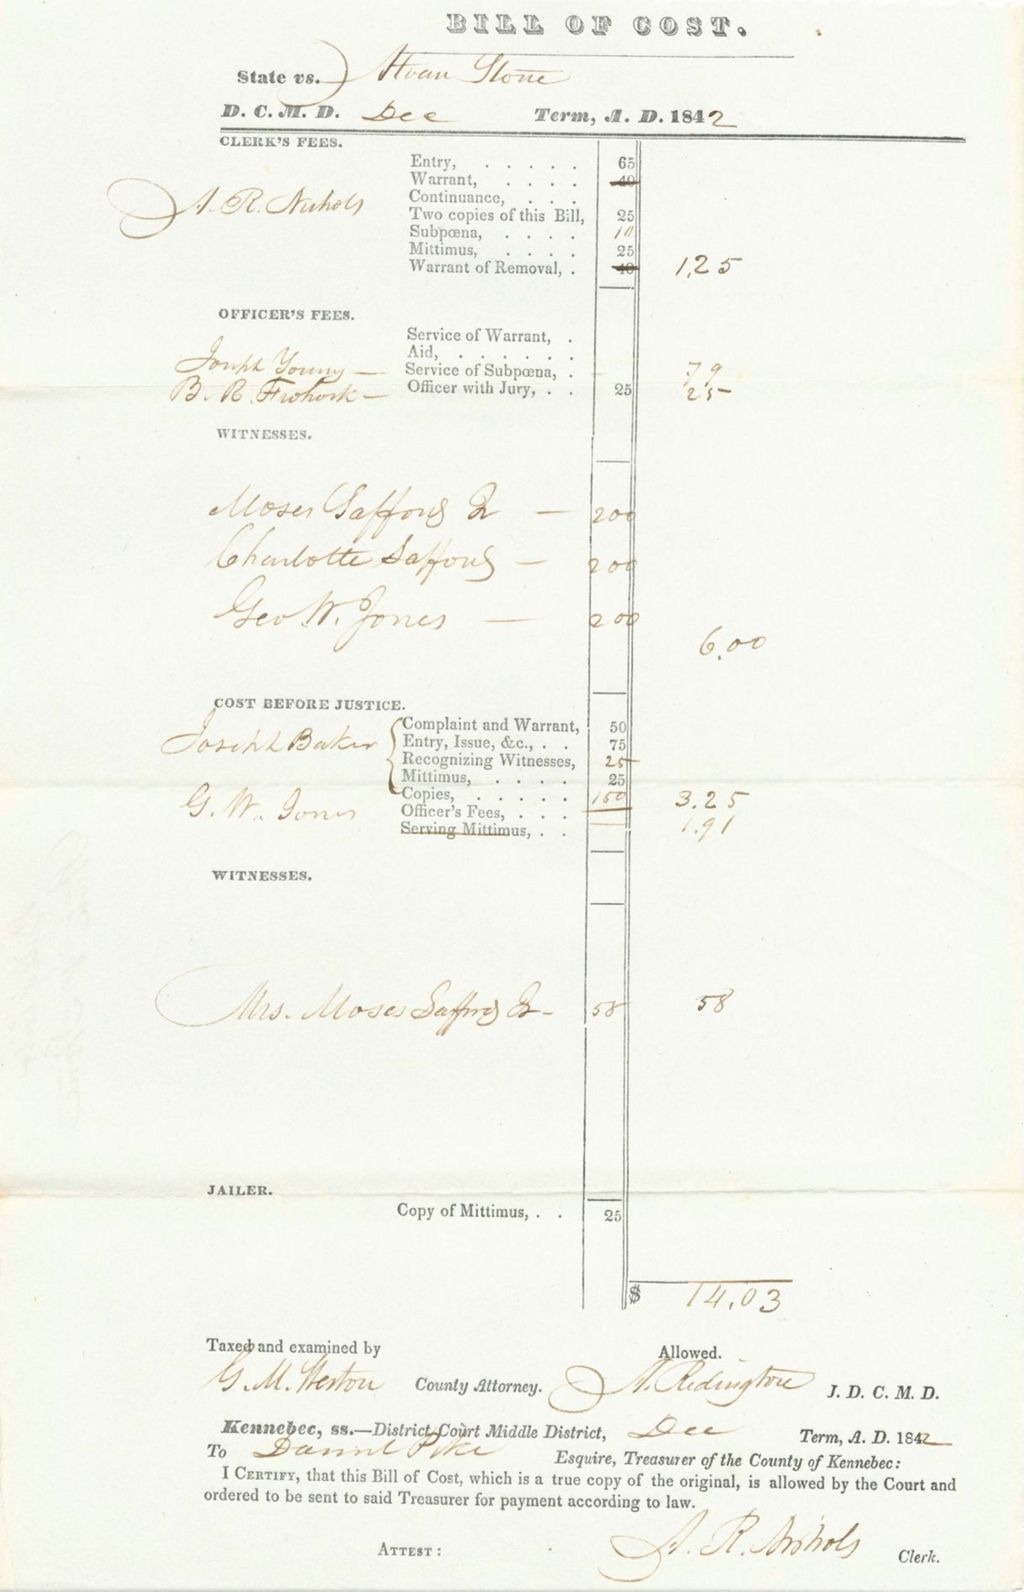 BILL OF COST.
State vs. Alvan Stone
D. C. M. D. Dec Term, A. D. 1842
CLERK'S FEES.
Entry, . . . . . 65
Warrant, . . . . 40
A. R. Nichols
Continuance, . . .
Two copies of this Bill, 25
Subpœna, . . . . 10
Mittimus, . . . . 25
Warrant of Removal, . 40 1,25
OFFICER'S FEES.
Service of Warrant, .
Aid, . . . . . .
Joseph Young — Service of Subpœna, . 79
B. R. Frohock — Officer with Jury, . . 25 25
WITNESSES.
Moses Safford Jr — 200
Charlotte Safford — 200
Geo W. Jones — 200
6.00
COST BEFORE JUSTICE.
Complaint and Warrant, 50
Joseph Baker Entry, Issue, &c., . . 75
Recognizing Witnesses, 25
Mittimus, . . . . 25
Copies, . . . . . 150 3.25
G. W. Jones Officer's Fees, . . . 1.91
Serving Mittimus, . .
WITNESSES.
Mrs. Moses Safford Jr - 58 58
JAILER.
Copy of Mittimus, . . 25
$ 14.03
Taxed and examined by Allowed.
G. M. Weston County Attorney. A. Redington J. D. C. M. D.
Kennebec, ss.—District Court Middle District, Dec Term, A. D. 1842
To Daniel Pike Esquire, Treasurer of the County of Kennebec:
I CERTIFY, that this Bill of Cost, which is a true copy of the original, is allowed by the Court and
ordered to be sent to said Treasurer for payment according to law.
ATTEST: A. R. Nichols Clerk.